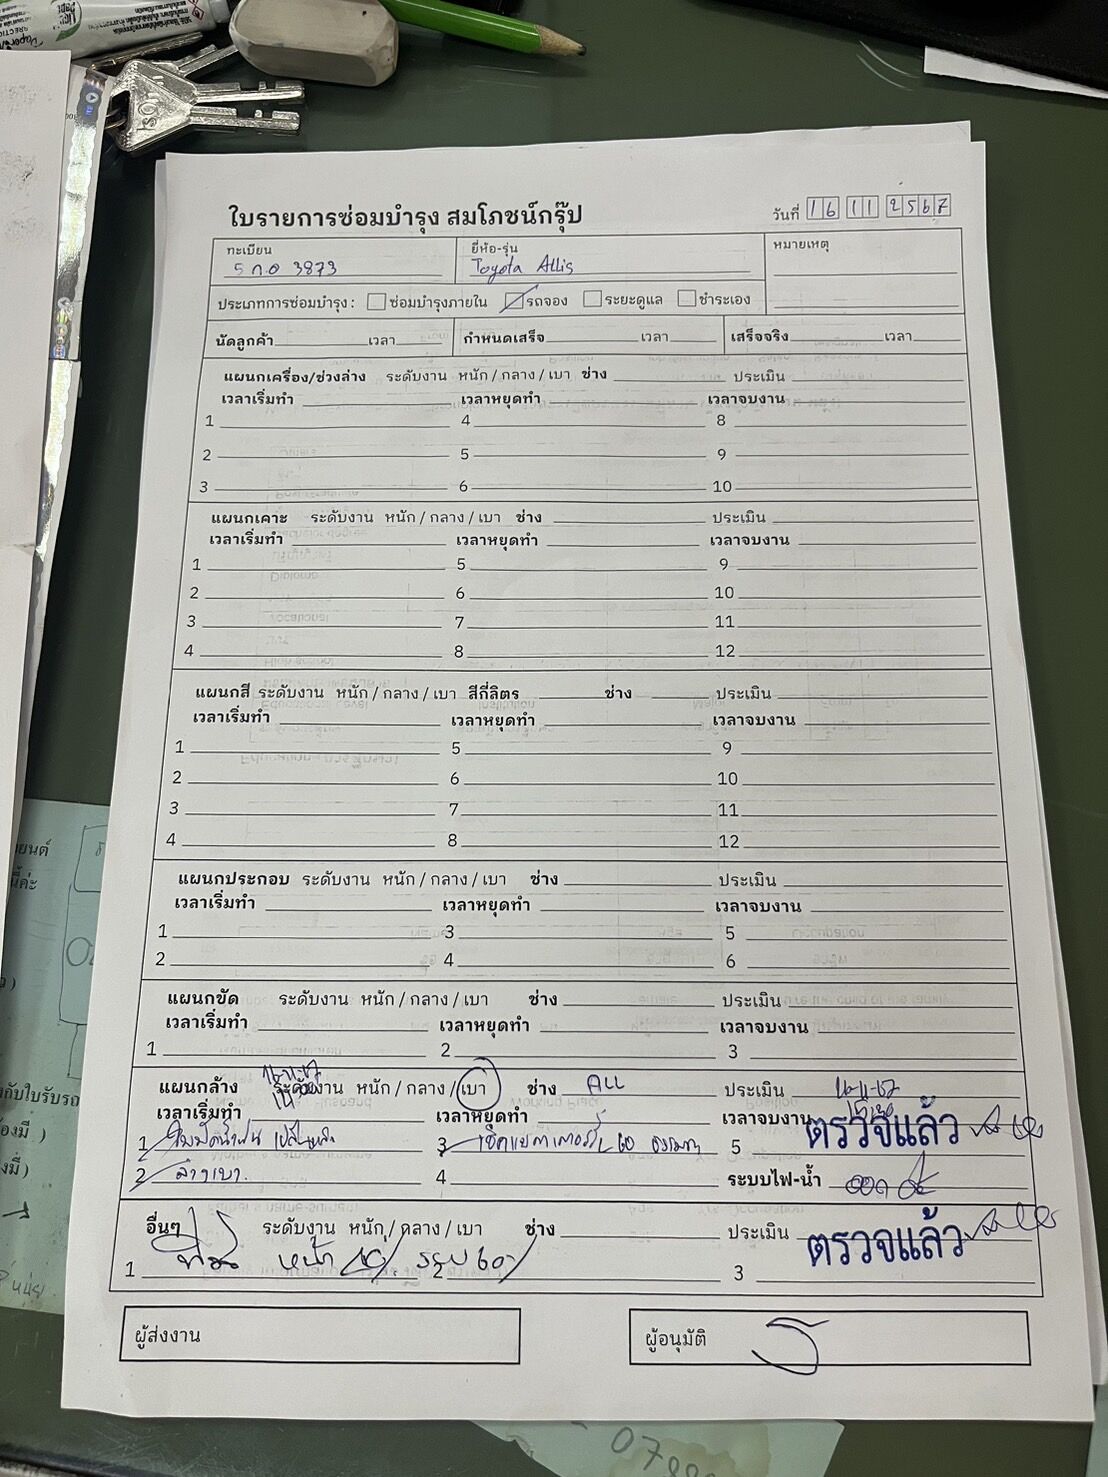 ใบรายการซ่อมบำรุง สมโภชน์กรุ๊ป
วันที่ 16 11 2567
ทะเบียน
5 กอ 3873
ยี่ห้อ-รุ่น
Toyota Altis
หมายเหตุ
ประเภทการซ่อมบำรุง : ซ่อมบำรุงภายใน รถจอง ระยะดูแล ชำระเอง
นัดลูกค้า เวลา กำหนดเสร็จ เวลา เสร็จจริง เวลา
แผนกเครื่อง/ช่วงล่าง ระดับงาน หนัก / กลาง / เบา ช่าง ประเมิน
เวลาเริ่มทำ เวลาหยุดทำ เวลาจบงาน
1 4 8
2 5 9
3 6 10
แผนกเคาะ ระดับงาน หนัก / กลาง / เบา ช่าง ประเมิน
เวลาเริ่มทำ เวลาหยุดทำ เวลาจบงาน
1 5 9
2 6 10
3 7 11
4 8 12
แผนกสี ระดับงาน หนัก / กลาง / เบา สีกี่ลิตร ช่าง ประเมิน
เวลาเริ่มทำ เวลาหยุดทำ เวลาจบงาน
1 5 9
2 6 10
3 7 11
4 8 12
แผนกประกอบ ระดับงาน หนัก / กลาง / เบา ช่าง ประเมิน
เวลาเริ่มทำ เวลาหยุดทำ เวลาจบงาน
1 3 5
2 4 6
แผนกขัด ระดับงาน หนัก / กลาง / เบา ช่าง ประเมิน
เวลาเริ่มทำ เวลาหยุดทำ เวลาจบงาน
1 2 3
แผนกล้าง 16-11-67 ระดับงาน หนัก / กลาง / เบา ช่าง ALL ประเมิน 16-11-67
เวลาเริ่มทำ เวลาหยุดทำ เวลาจบงาน
1 3 5 ตรวจแล้ว
2 ล้างเบา. 4 ระบบไฟ-น้ำ
อื่นๆ ระดับงาน หนัก / กลาง / เบา ช่าง ประเมิน ตรวจแล้ว
1 หน้า 2 3
ผู้ส่งงาน
ผู้อนุมัติ